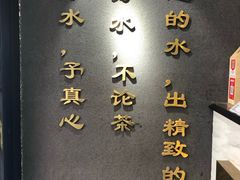 的水，出精致的
水，不论茶
水，予真心